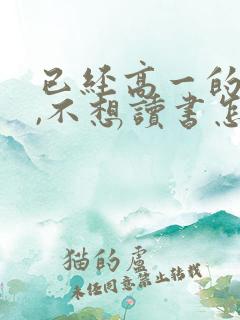 已经高一的
,不想讀書怎
猫的盧
未经同意禁止转载